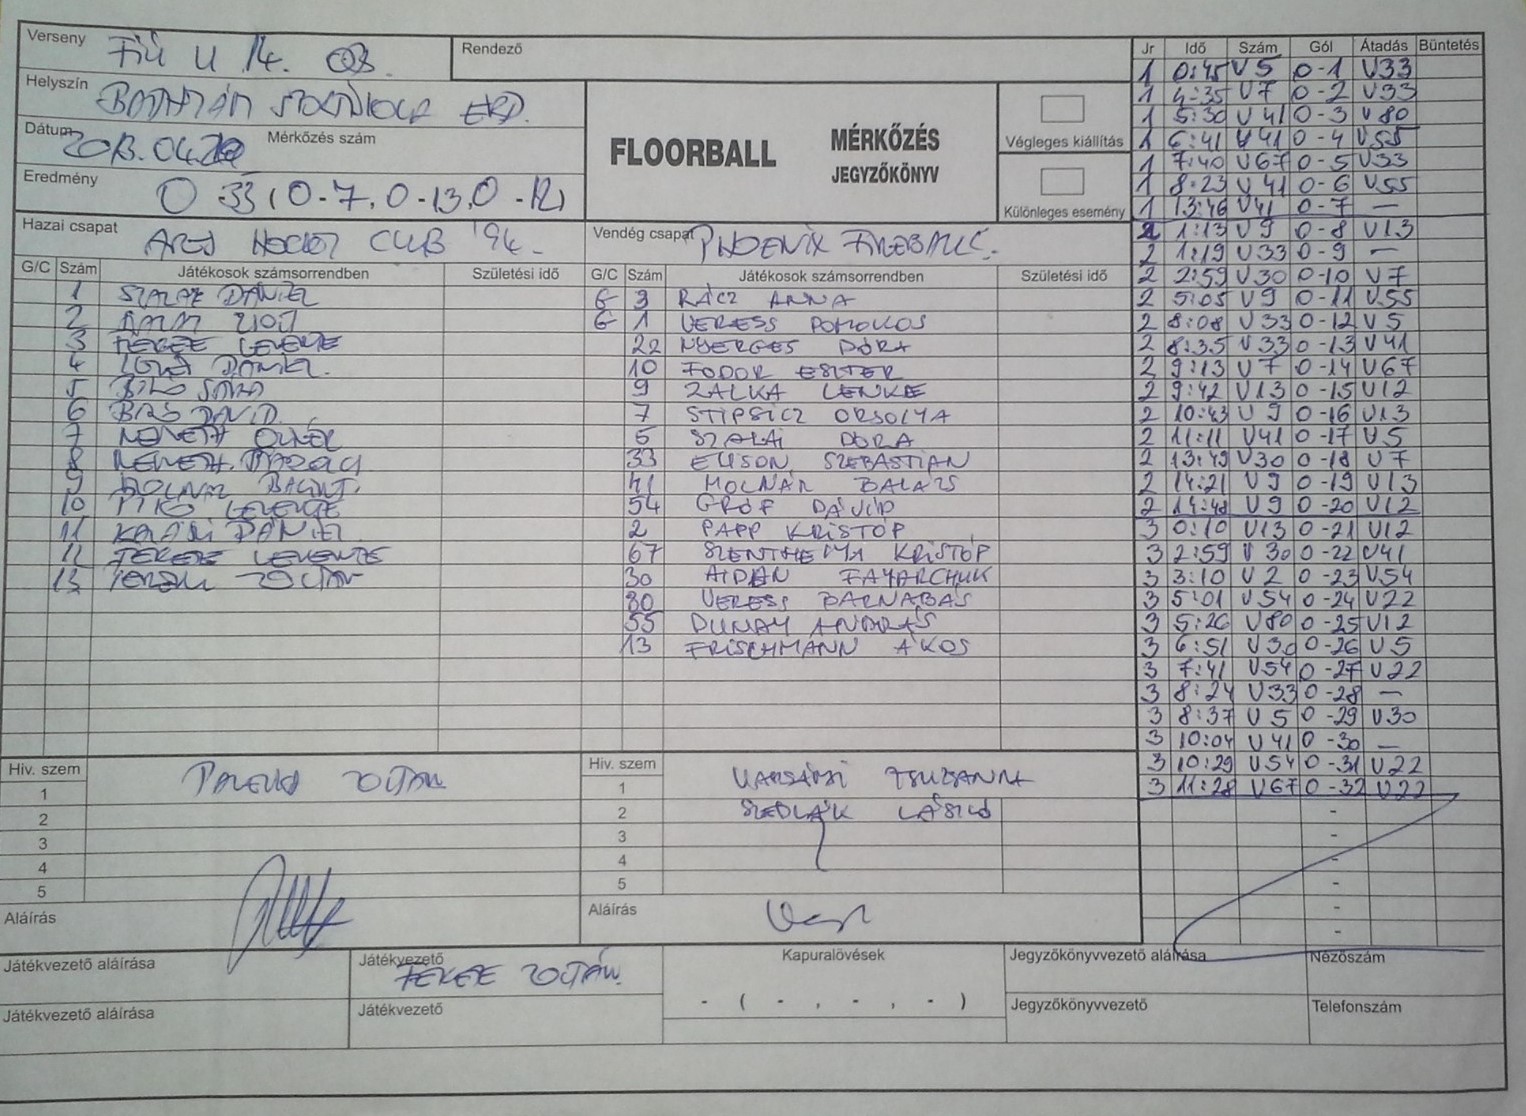 Verseny FIÚ U 14. OB.
Rendező
Helyszín BATTHYÁNY SPORTISKOLA ÉRD.
Dátum 2013.04.20
Mérkőzés szám
Eredmény 0 - 33 (0-7, 0-13, 0-12)
FLOORBALL
MÉRKŐZÉS
JEGYZŐKÖNYV
Végleges kiállítás
Különleges esemény
Hazai csapat ARES HOCKEY CLUB '94.
Vendég csapat PHOENIX FIREBALL.
G/C Szám Játékosok számsorrendben Születési idő
1 SZALAI DÁNIEL
2
3 FEKETE LEVENTE
4 DÁNIEL
5
6 DÁVID
7 NÉMETH
8 NÉMETH
9 MOLNÁR BÁLINT
10 LEVENTE
11 DÁNIEL
12 FEKETE LEVENTE
13 ZOLTÁN
G/C Szám Játékosok számsorrendben Születési idő
G 3 RÁCZ ANNA
G 1 VERESS POMOKOS
22 NYERGES DÓRA
10 FODOR ESZTER
9 ZALKA LENKE
7 STIPSICZ ORSOLYA
5 SZALAI DÓRA
33 ELISON SZEBASTIAN
41 MOLNÁR BALÁZS
54 GRÓF DÁVID
2 PAPP KRISTÓF
67 SZENTHE KRISTÓF
30 AIDAN FAYARCHUK
80 VERESS BARNABÁS
55 DUNAY ANDRÁS
13 FRISCHMANN ÁKOS
Hiv. szem
1 ZOLTÁN
2
3
4
5
Aláírás
Hiv. szem
1 ZSUZSANNA
2 SZEDLÁK LÁSZLÓ
3
4
5
Aláírás
Játékvezető aláírása
Játékvezető FEKETE ZOLTÁN
Játékvezető aláírása
Játékvezető
Kapuralövések
- ( - , - , - )
Jegyzőkönyvvezető aláírása
Jegyzőkönyvvezető
Nézőszám
Telefonszám
Jr Idő Szám Gól Átadás Büntetés
1 0:45 V5 0-1 V33
1 4:35 V7 0-2 V33
1 5:30 V41 0-3 V80
1 6:41 V41 0-4 V55
1 7:40 V67 0-5 V33
1 8:23 V41 0-6 V55
1 13:46 V41 0-7 —
2 1:13 V9 0-8 V13
2 1:19 V33 0-9 —
2 2:59 V30 0-10 V7
2 5:05 V9 0-11 V55
2 8:08 V33 0-12 V5
2 8:35 V33 0-13 V41
2 9:13 V7 0-14 V67
2 9:42 V13 0-15 V12
2 10:43 V9 0-16 V13
2 11:11 V41 0-17 V5
2 13:49 V30 0-18 V7
2 14:21 V9 0-19 V13
2 14:48 V9 0-20 V12
3 0:10 V13 0-21 V12
3 2:59 V30 0-22 V41
3 3:10 V2 0-23 V54
3 5:01 V54 0-24 V22
3 5:26 V80 0-25 V12
3 6:51 V30 0-26 V5
3 7:41 V54 0-27 V22
3 8:24 V33 0-28 —
3 8:37 V5 0-29 V30
3 10:04 V41 0-30 —
3 10:29 V54 0-31 V22
3 11:28 V67 0-32 V22
-
-
-
-
-
-